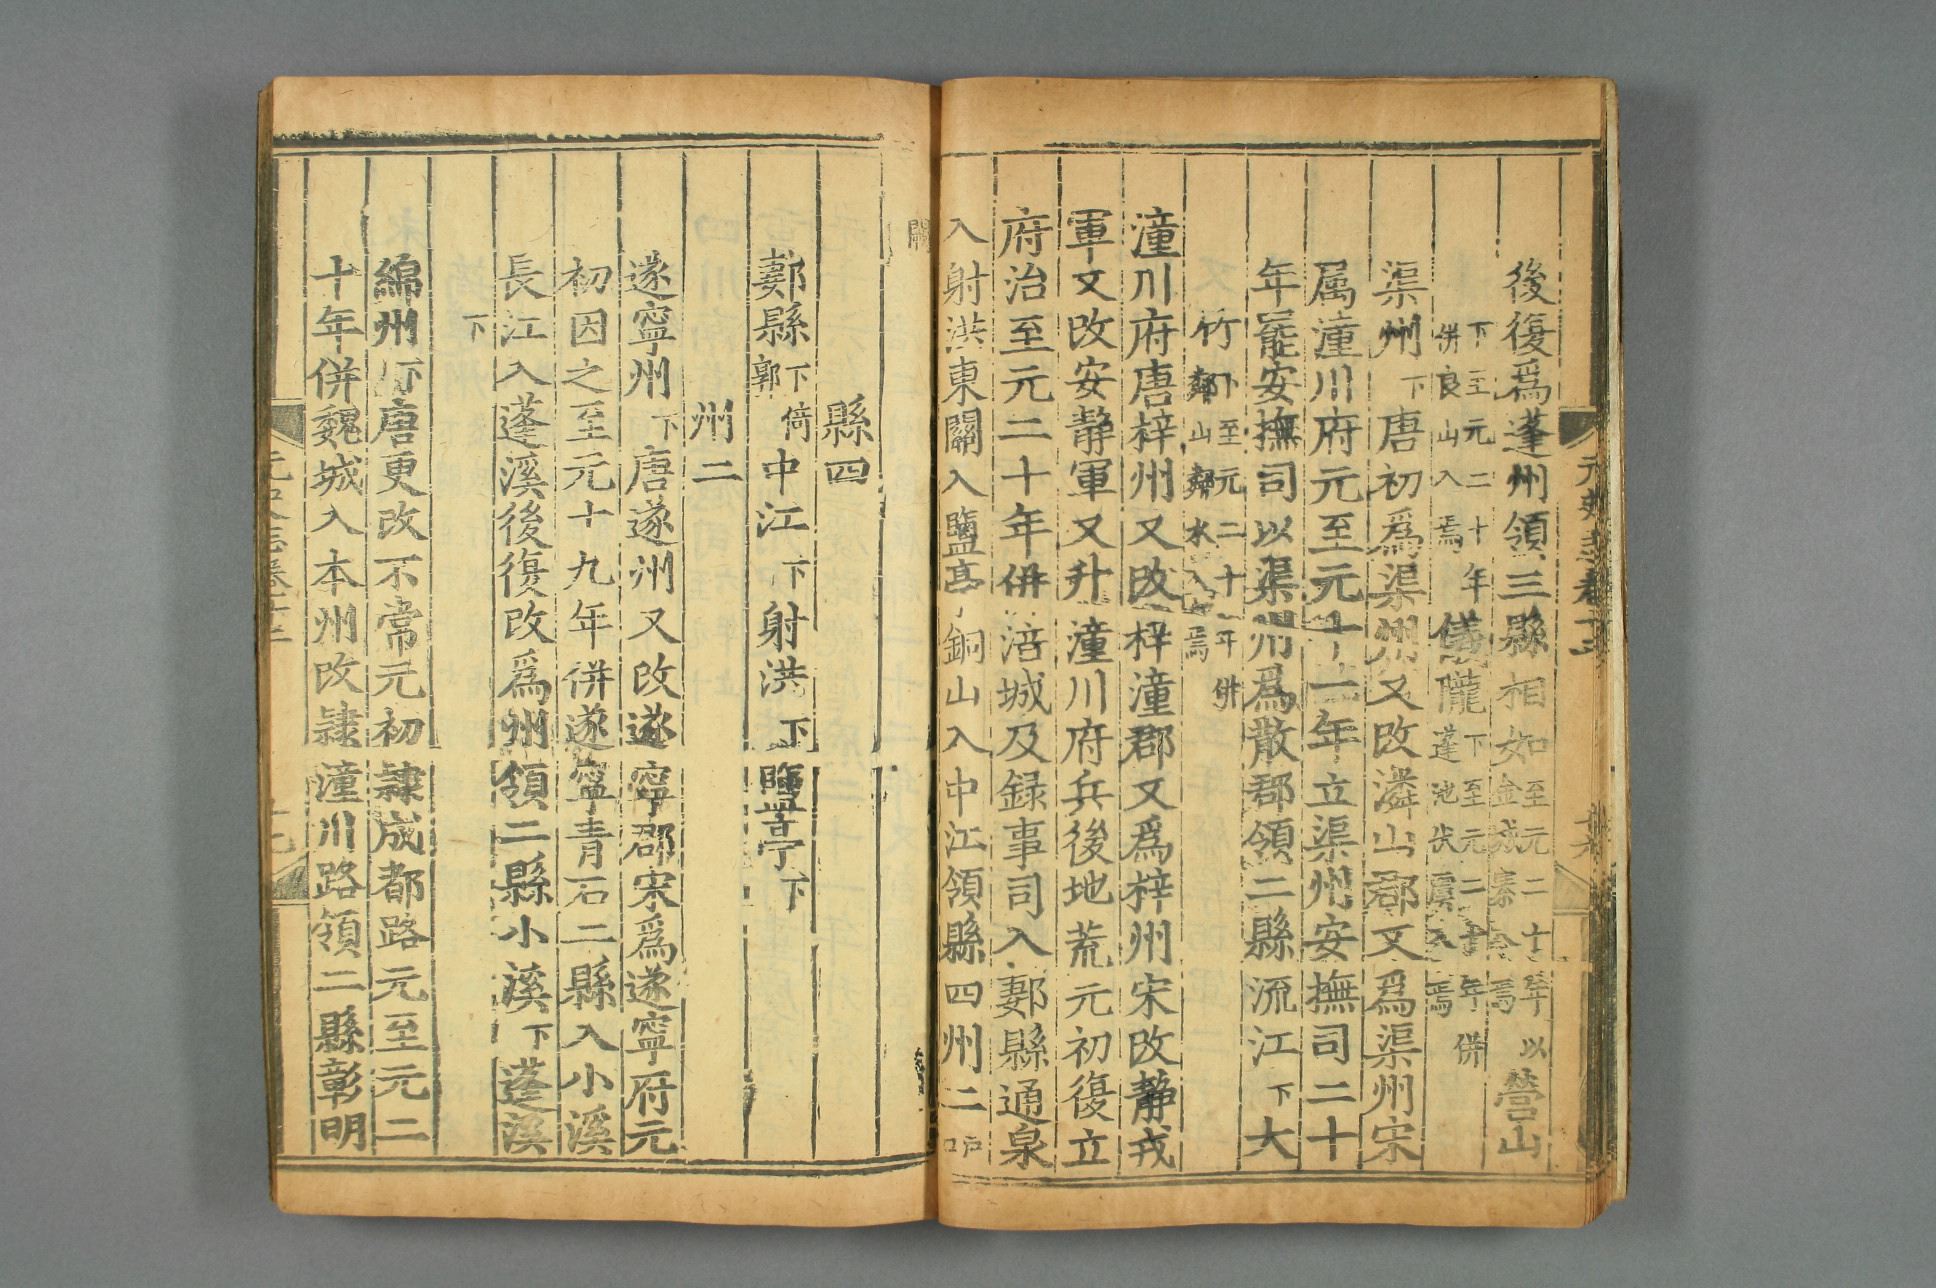 後復爲蓬州領三縣相如至元二十年以金城寨入焉營山
下至元二十年併良山入焉儀隴下至元二十年併蓬池伏虞入焉
渠州下唐初爲渠州又改潾山郡又爲渠州宋
屬潼川府元至元十一年立渠州安撫司二十
年罷安撫司以渠州爲散郡領二縣流江下大
竹下至元二十年併鄰山鄰水入焉
潼川府唐梓州又改梓潼郡又爲梓州宋改靜戎
軍又改安靜軍又升潼川府兵後地荒元初復立
府治至元二十年併涪城及録事司入郪縣通泉
入射洪東關入鹽亭銅山入中江領縣四州二戶口
闕
縣四
郪縣下倚郭中江下射洪下鹽亭下
州二
遂寧州下唐遂州又改遂寧郡宋爲遂寧府元
初因之至元十九年併遂寧青石二縣入小溪
長江入蓬溪後復改爲州領二縣小溪下蓬溪
下
綿州下唐更改不常元初隸成都路元至元二
十年併魏城入本州改隸潼川路領二縣彰明
元史志卷十二